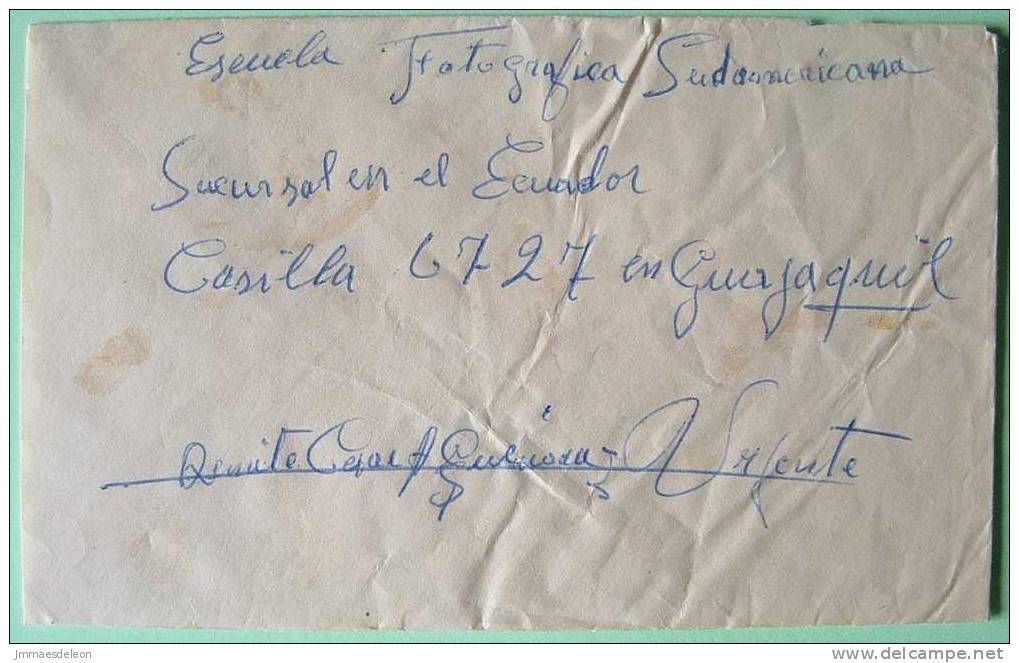 Escuela Fotografica Sudamericana
Sucursal en el Ecuador
Casilla 6727 en Guayaquil
Remite Cesar A Urgente
Jmmaesdeleon
www.delcampe.net